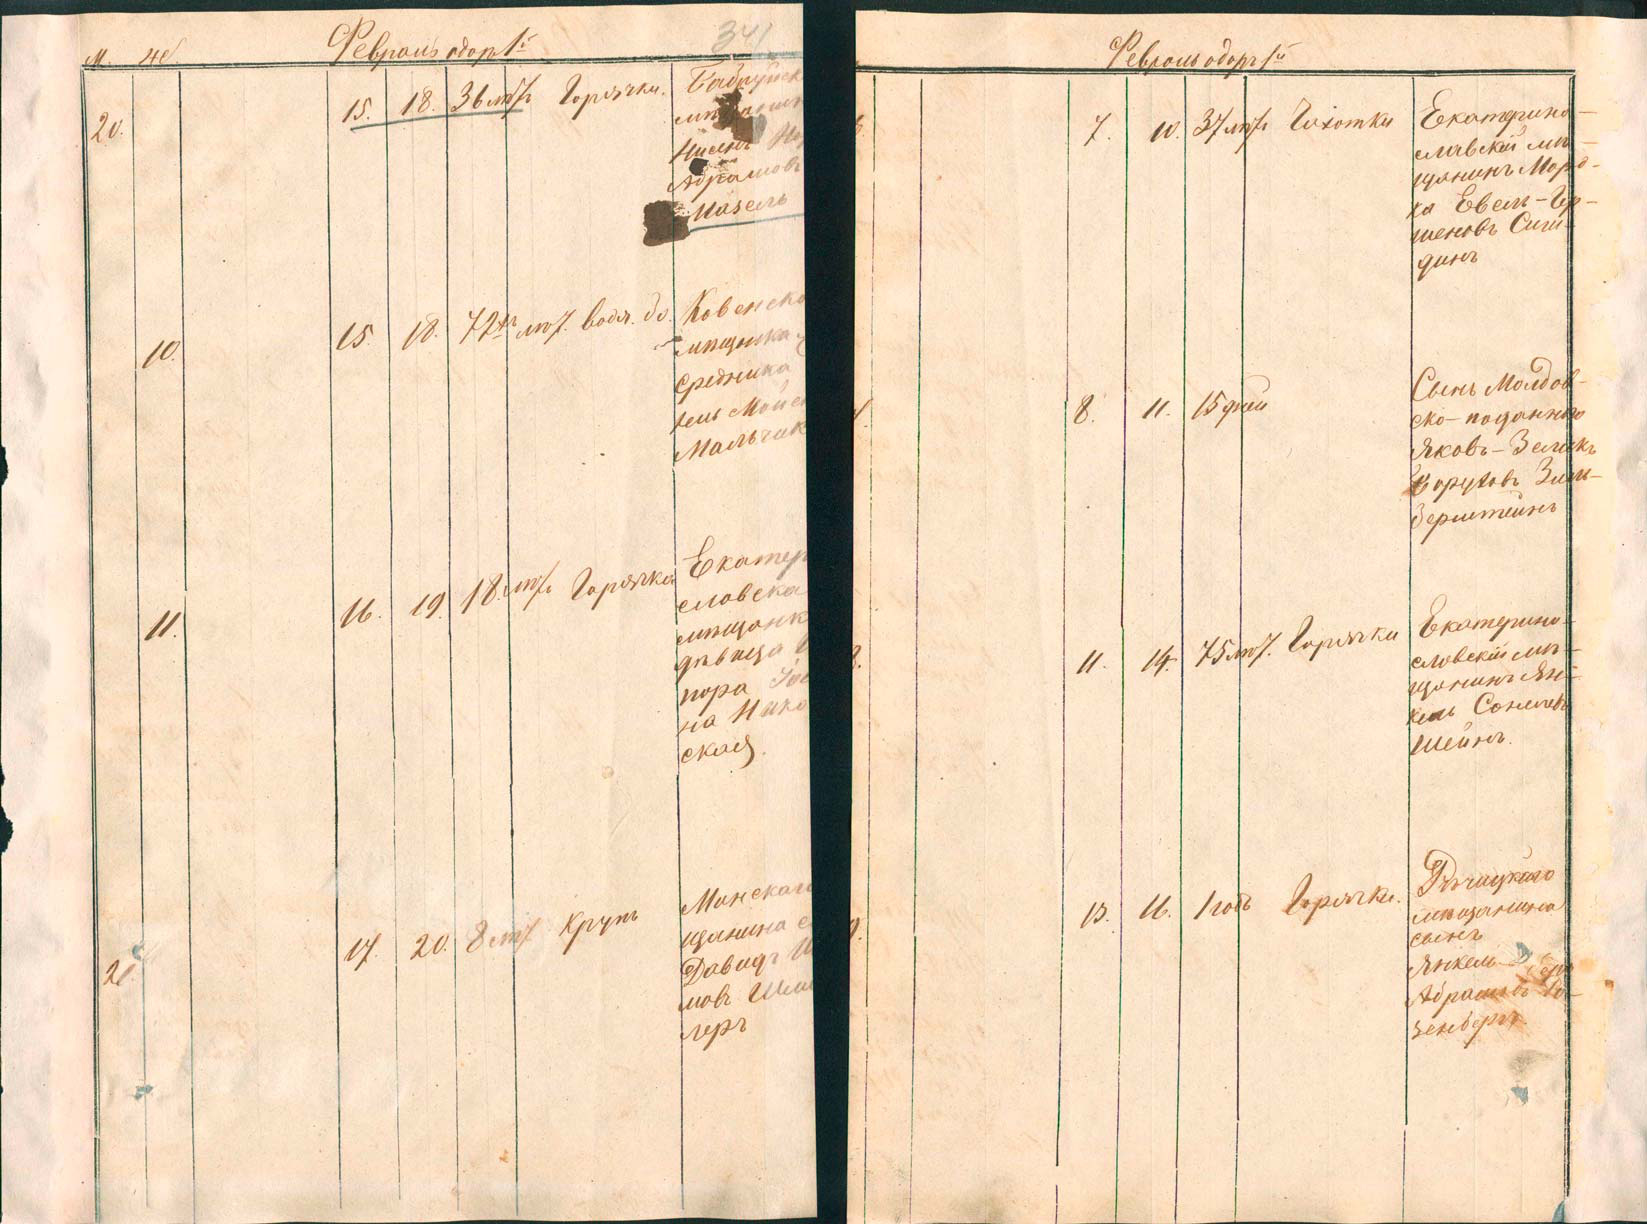 М. Ж Февраль адаръ 1й 341
20. 15. 18. 36 лѣтъ Горячки. Бобруйск
мѣщанин
Нисенъ
Абрамовъ
Мазель
10. 15. 18. 72хъ лѣт. водя. бо. Ковенско
мѣщанка
Средника
тель Моисе
Мальчик
11. 16. 19. 18. лѣтъ Горячка Екатер
славска
мѣщанк
дѣвица
пора
на
ская.
21. 17. 20. 8 лѣт Крупъ Минскаго
щанина с
Давидъ
мовъ
леръ
Февраль адаръ 1й
7. 10. 37 лѣтъ Чахотки Екатерино-
славскій мѣ-
щанинъ Морд-
ха Евель-Гер-
шеновъ Сиги-
динъ
8. 11. 15 дней Сынъ Молдов-
ско-подданнаго
Яковъ-Зеликъ
Боруховъ Зиль-
берштейнъ
11. 14. 75 лѣт. Горячки Екатерино-
славскій мѣ-
щанинъ Ян-
кель
Шейнъ.
13. 16. 1 годъ Горячки. Рѣчицкаго
мѣщанина
сынъ
Янкель-
Абрамовъ Ро-
зенбергъ.